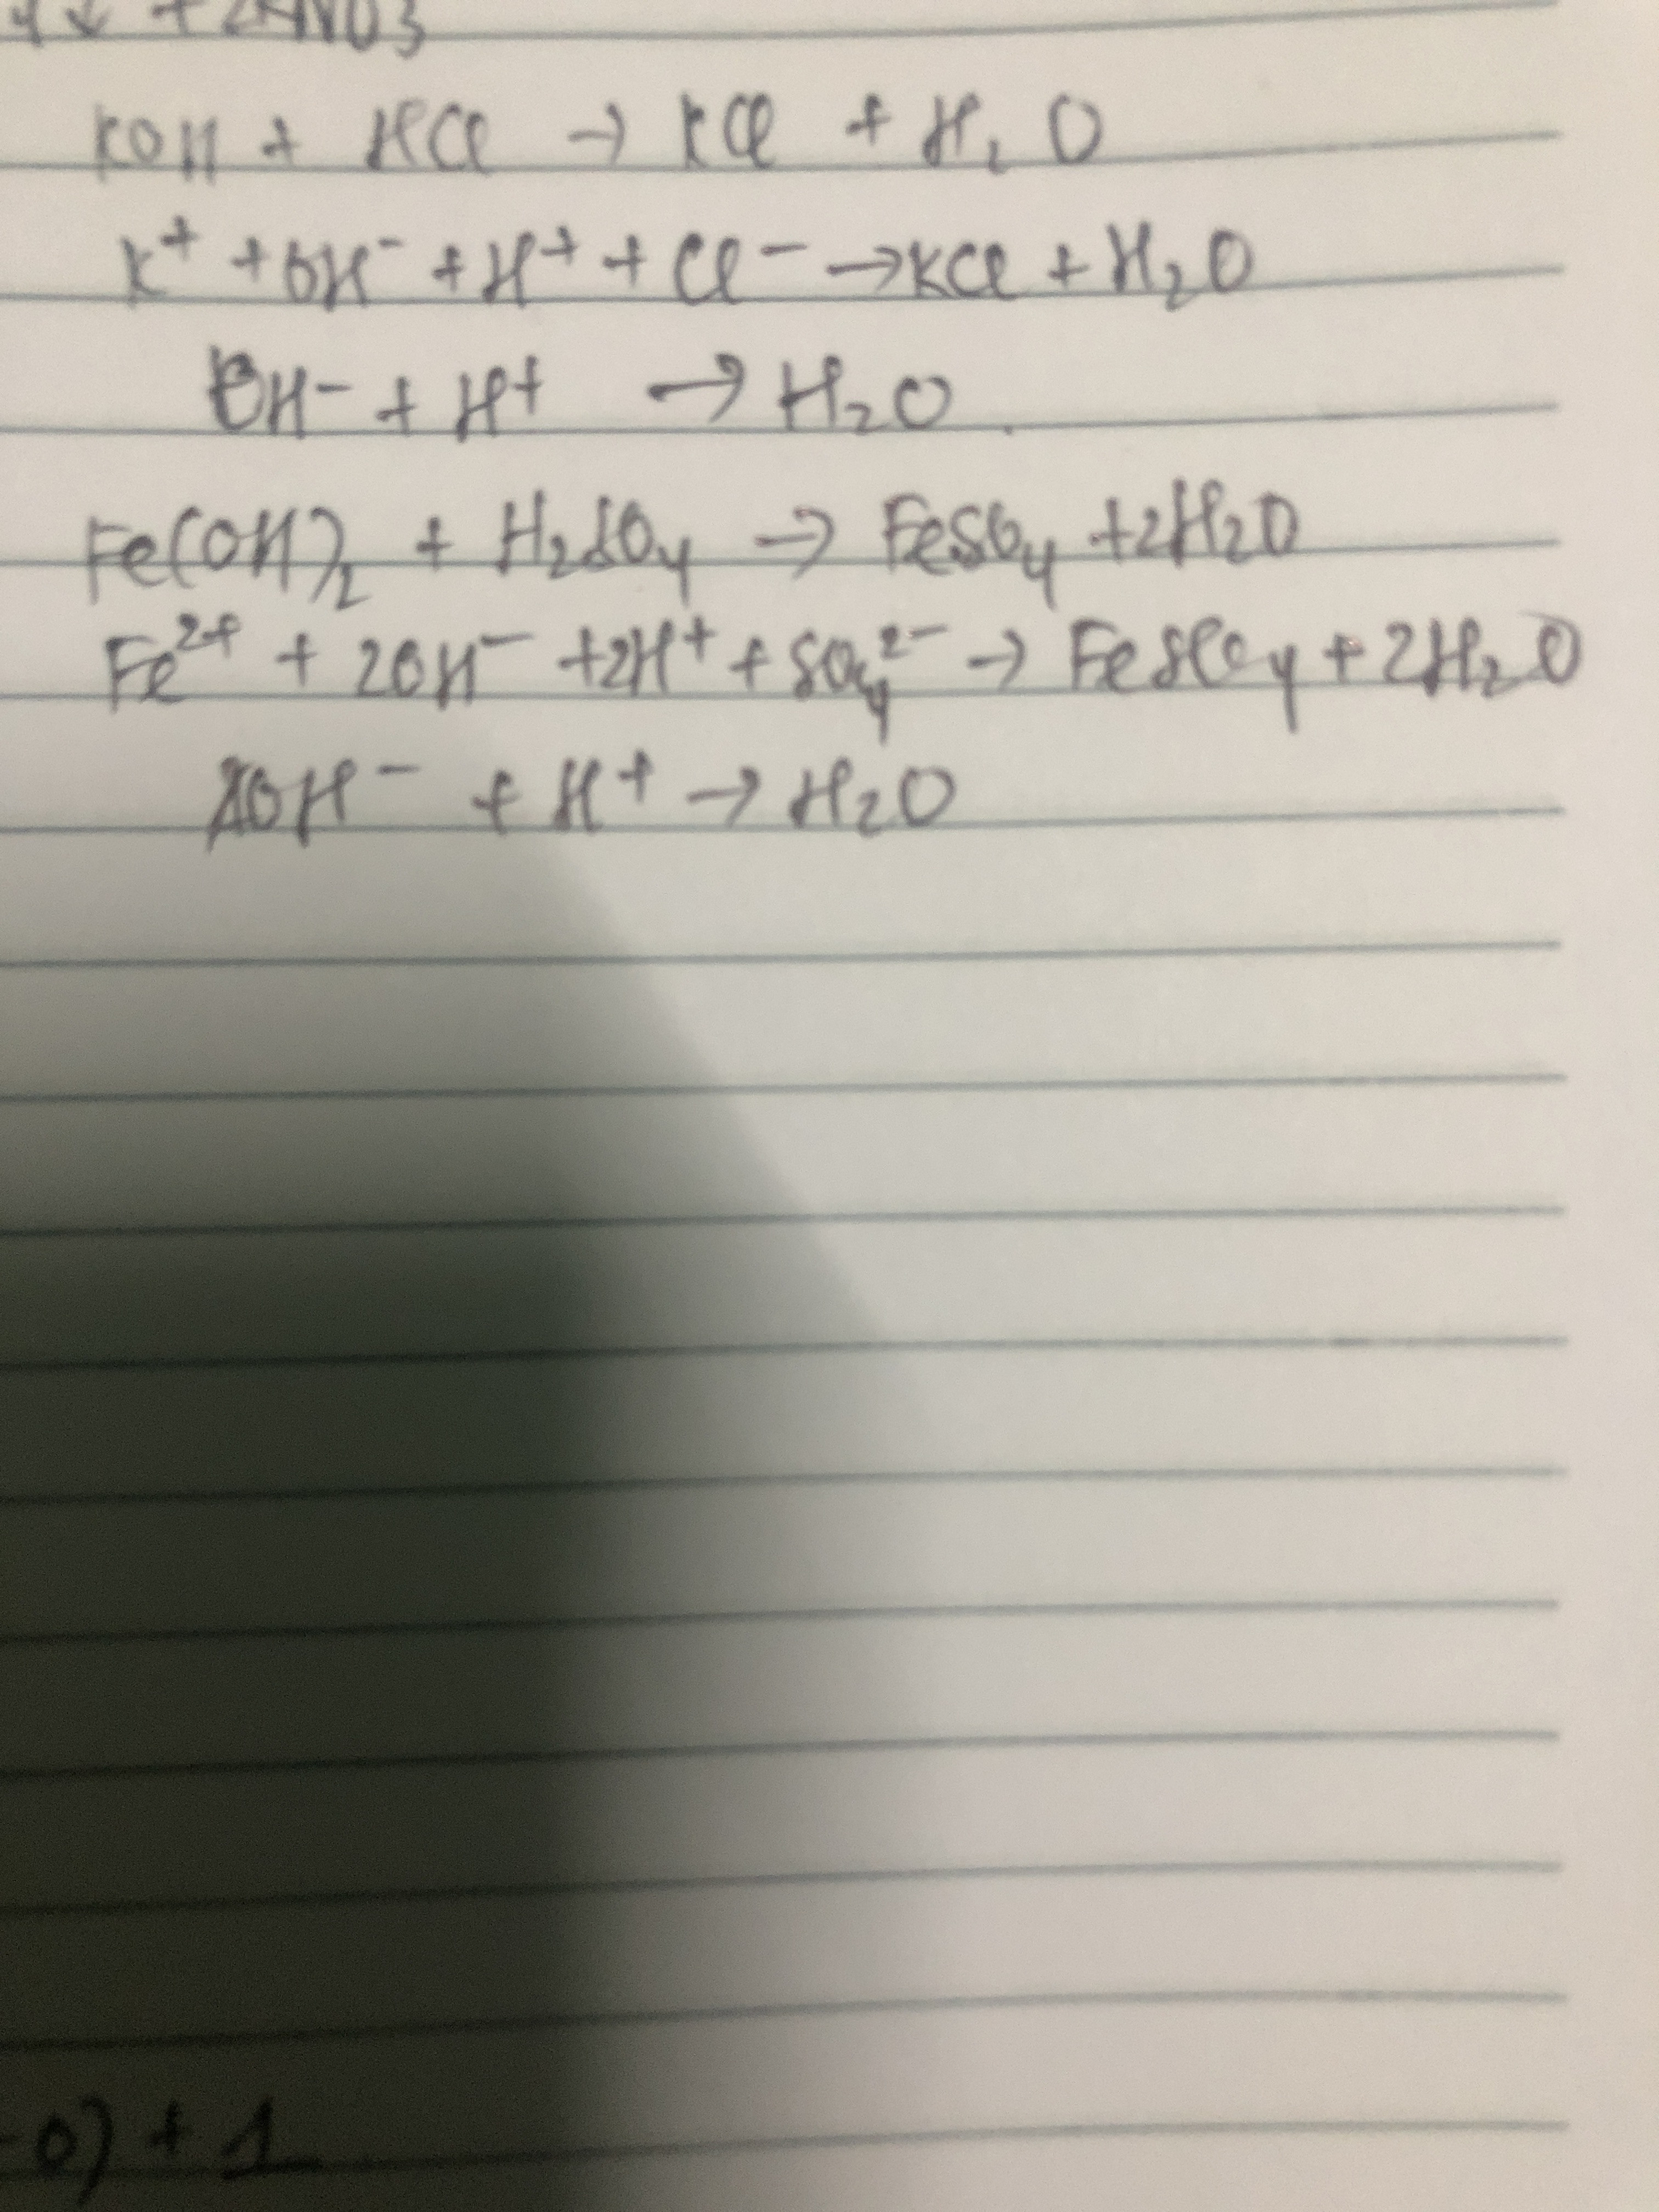 4↓ + 2HNO3
KOH + HCl → KCl + H₂O
K⁺ + OH⁻ + H⁺ + Cl⁻ → KCl + H₂O
OH⁻ + H⁺ → H₂O.
Fe(OH)₂ + H₂SO₄ → FeSO₄ + 2H₂O
Fe²⁺ + 2OH⁻ + 2H⁺ + SO₄²⁻ → FeSO₄ + 2H₂O
OH⁻ + H⁺ → H₂O
-0) + 1